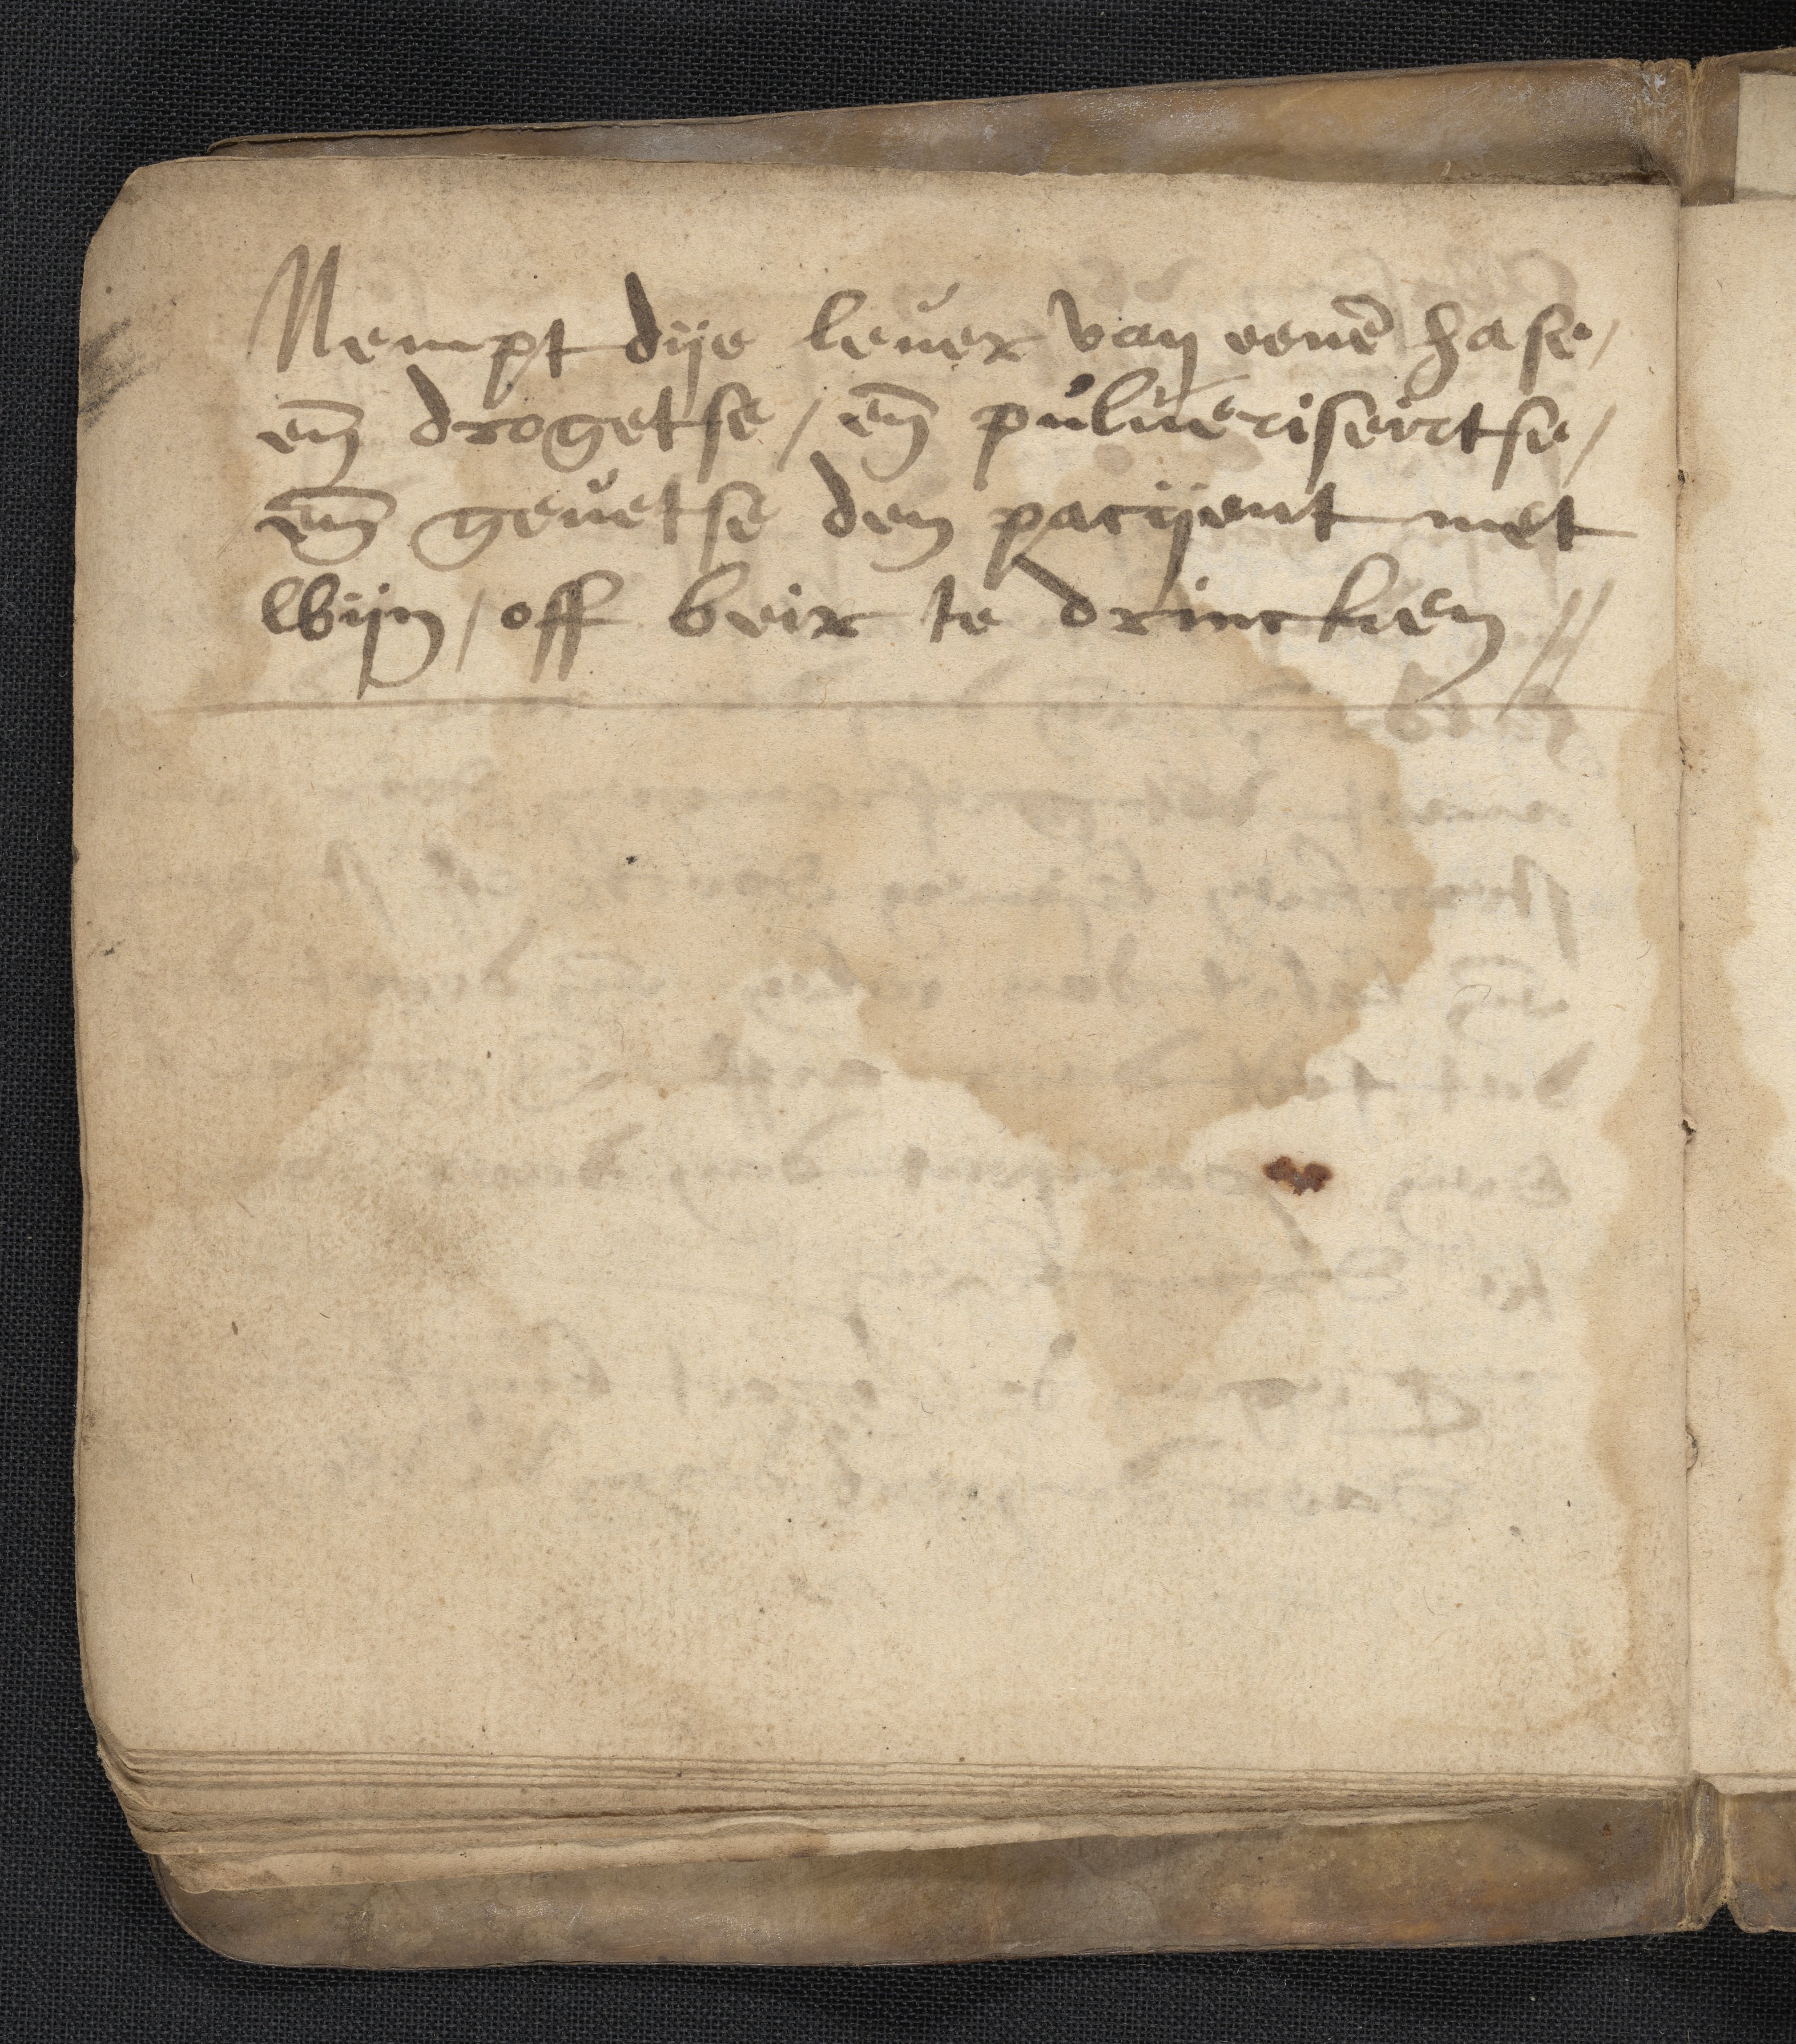 Nempt dije leuer van eenē hase /
en̄ drogetse / en̄ puluēriseirtse /
en̄ geuetse den pacijent met
wijn / off beir te drincken //